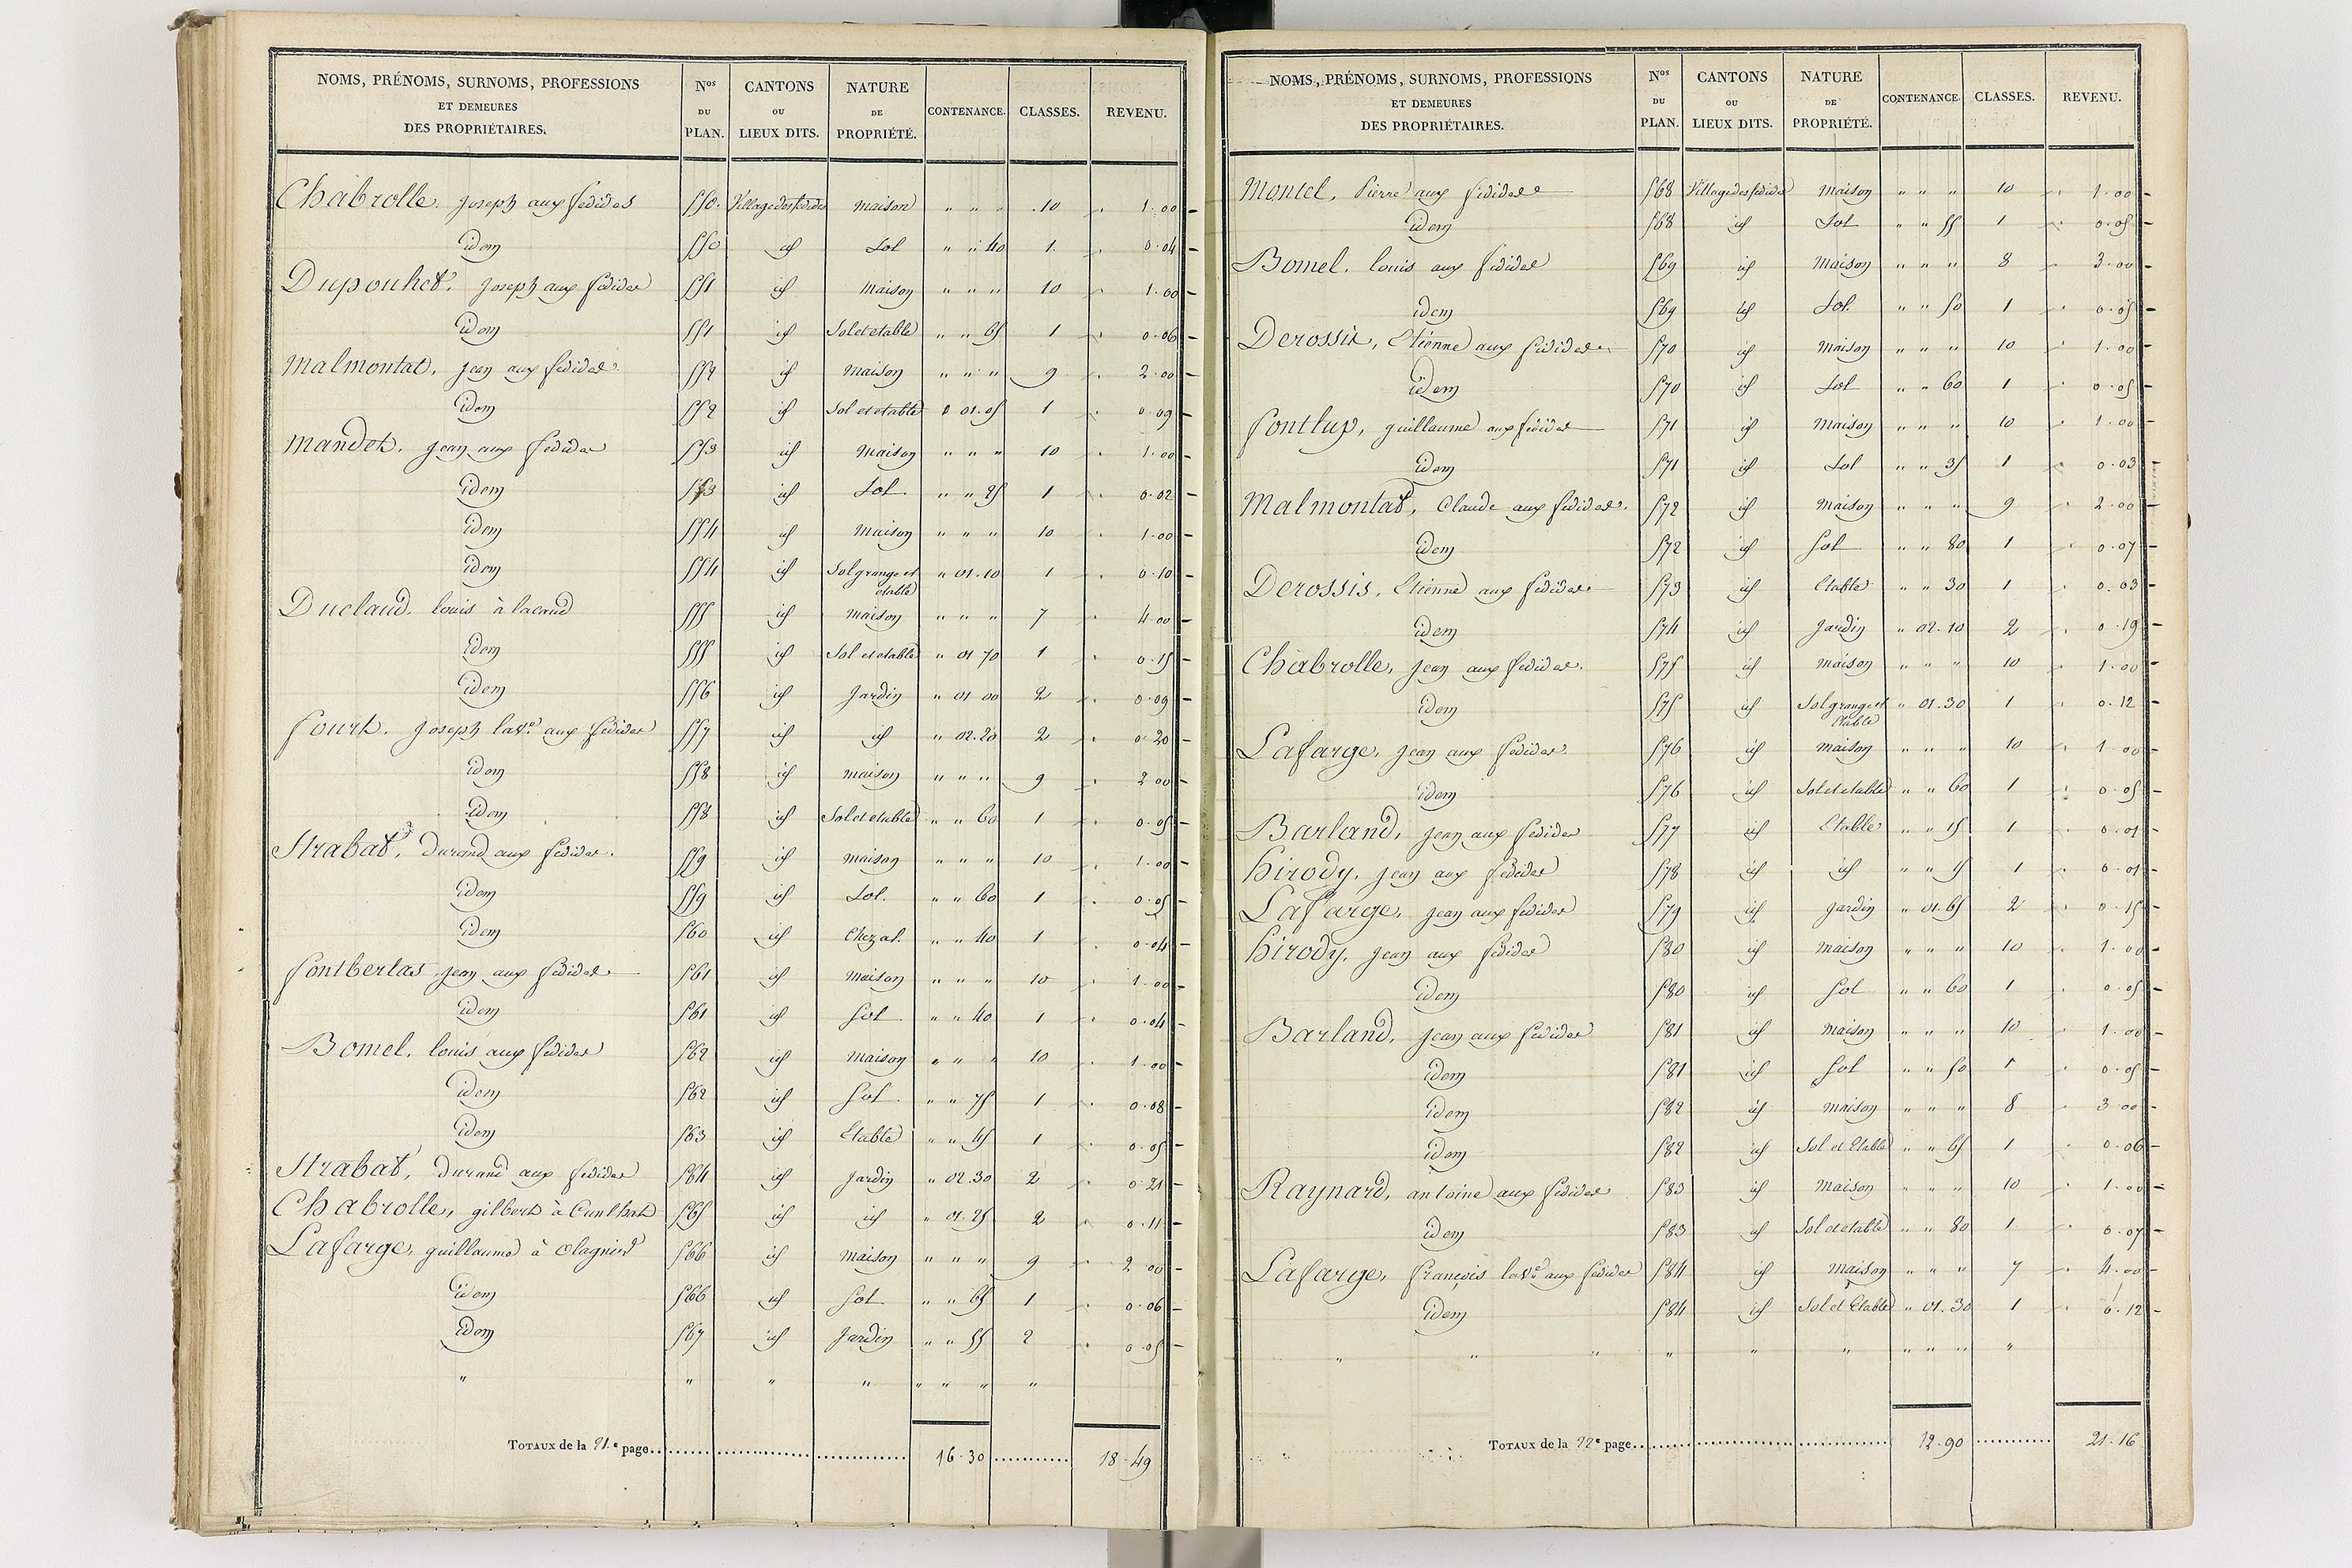 NOMS, PRÉNOMS, SURNOMS, PROFESSIONS ET DEMEURES DES PROPRIÉTAIRES. | Nos DU PLAN. | CANTONS OU LIEUX DITS. | NATURE DE PROPRIÉTÉ. | CONTENANCE. | CLASSES. | REVENU.
Chabrolle, Joseph aux fedides 550. Village des fedides maison " " " 10 1.00
idem 550 id Sol " " 40 1 0.04
Dupouhet, Joseph aux fedides 551 id Maison " " " 10 1.00
idem 551 id Sol et etable " " 65 1 0.06
Malmontat, Jean aux fedides 552 id maison " " " 9 2.00
idem 552 id Sol et etable " 01.05 1 0.09
Mandet, Jean aux fedides 553 id maison " " " 10 1.00
idem 553 id Sol " " 25 1 0.02
idem 554 id maison " " " 10 1.00
idem 554 id Sol grange et etable " 01.10 1 0.10
Duclaud, louis à lacaud 555 id maison " " " 7 4.00
idem 555 id Sol et etable " 01 70 1 0.15
idem 556 id Jardin " 01 00 2 0.09
fourt, Joseph la ve. aux fedides 557 id id " 02.20 2 0.20
idem 558 id maison " " " 9 2 00
idem 558 id Sol et etable " " 60 1 0.05
Strabat, Durand aux fedides 559 id maison " " " 10 1.00
idem 559 id Sol. " " 60 1 0.05
idem 560 id Chezal. " " 40 1 0.04
fontbertas, Jean aux fedides 561 id maison " " " 10 1.00
idem 561 id Sol " " 40 1 0.04
Bomel, louis aux fedides 562 id maison " " " 10 1.00
idem 562 id Sol " " 75 1 0.08
idem 563 id Etable " " 45 1 0.05
Strabat, Durand aux fedides 564 id Jardin " 02.30 2 0.21
Chabrolle, gilbert à Cunlhat 565 id id " 01.25 2 0.11
Lafarge, guillaume à olagnier 566 id maison " " " 9 2 00
idem 566 id Sol " " 65 1 0.06
idem 567 id Jardin " " 55 2 0.05
" " " " " " " "
TOTAUX de la 21.e page 16.30 18.49
NOMS, PRÉNOMS, SURNOMS, PROFESSIONS ET DEMEURES DES PROPRIÉTAIRES. | Nos DU PLAN. | CANTONS OU LIEUX DITS. | NATURE DE PROPRIÉTÉ. | CONTENANCE. | CLASSES. | REVENU.
Montel, Pierre aux fedides 568 Village des fedides maison " " " 10 1.00
idem 568 id Sol " " 55 1 0.05
Bomel, louis aux fedides 569 id maison " " " 8 3.00
idem 569 id Sol. " " 50 1 0.05
Derossis, Etienne aux fedides 570 id maison " " " 10 1.00
idem 570 id Sol " " 60 1 0.05
fontlup, guillaume aux fedides 571 id maison " " " 10 1.00
idem 571 id Sol " " 35 1 0.03
Malmontat, Claude aux fedides. 572 id maison " " " 9 2.00
idem 572 id Sol " " 80 1 0.07
Derossis, Etienne aux fedides 573 id Etable " " 30 1 0.03
idem 574 id Jardin " 02.10 2 0.19
Chabrolle, Jean aux fedides. 575 id maison " " " 10 1.00
idem 575 id Sol grange et Etable " 01.30 1 0.12
Lafarge, Jean aux fedides. 576 id maison " " " 10 1 00
idem 576 id Sol et etable " " 60 1 0.05
Barland, Jean aux fedides 577 id Etable " " 15 1 0.01
hirody, Jean aux fedides 578 id id " " 15 1 0.01
Lafarge, Jean aux fedides 579 id Jardin " 01.65 2 0.15
hirody, Jean aux fedides 580 id maison " " " 10 1.00
idem 580 id Sol " " 60 1 0.05
Barland, Jean aux fedides 581 id maison " " " 10 1.00
idem 581 id Sol " " 50 1 0.05
idem 582 id maison " " " 8 3 00
idem 582 id Sol et Etable " " 65 1 0.06
Raynard, antoine aux fedides 583 id maison " " " 10 1.00
idem 583 id Sol et etable " " 80 1 0.07
Lafarge, françois la ve. aux fedides 584 id maison " " " 7 4.00
idem 584 id Sol et Etable " 01.30 1 0.12
" " " " " " " " " "
TOTAUX de la 22e page 12.90 21.16